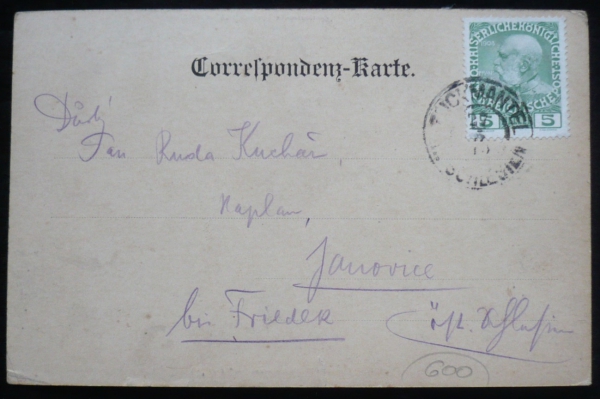 Correspondenz-Karte.
KAISERLICHE KÖNIGLICHE ÖSTERREICHISCHE POST
1908
5 5
POCKMANTEL
SCHLESIEN
Pan Ruda Kuchař,
Kaplan,
Janovice
bei Friedek
öst. Schlesien
600